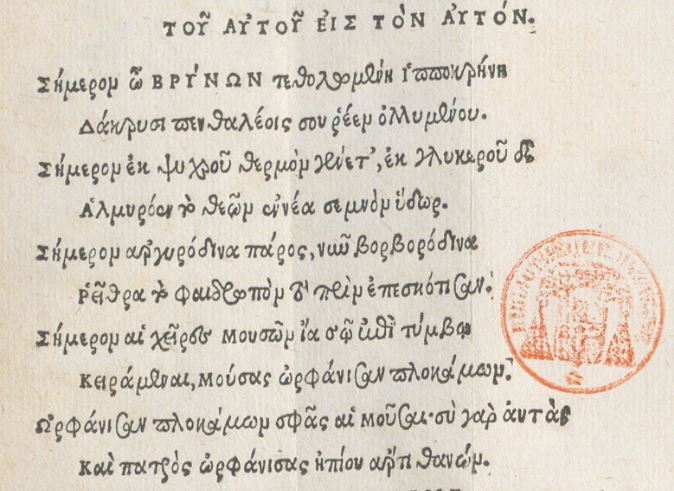 ΤΟΥ͂ ΑΥ̓ΤΟΥ͂ ΕΙΣ ΤῸΝ ΑΥ̓ΤΌΝ.
Σήμερον ὦ ΒΡΥΝΩΝ τεθολωμένη ἱπποκρήνη
Δάκρυσι πενθαλέοις σου ῥέεν ὀλλυμένου.
Σήμερον ἐκ ψυχροῦ θερμὸν γένετ', ἐκ γλυκεροῦ δὲ
Ἁλμυρὸν τὸ θεῶν ἐννέα σεμνὸν ὕδωρ.
Σήμερον ἀργυρόδινα πάρος, νῦν βορβορόδινα
Ῥεῖθρα τὸ φαιδρωπὸν πρὶν ἐπεσκότισαν.
Σήμερον αἱ χεῖρες μουσῶν ἴα σῷ ἐπὶ τύμβῳ
Κειράμεναι, μούσας ὠρφάνισαν πλοκάμων.
Ὠρφάνισαν πλοκάμων σφᾶς αἱ μοῦσαι· σὺ γὰρ αὐτὰς
Καὶ πατρὸς ὠρφάνισας ἠπίου ἄρτι θανών.